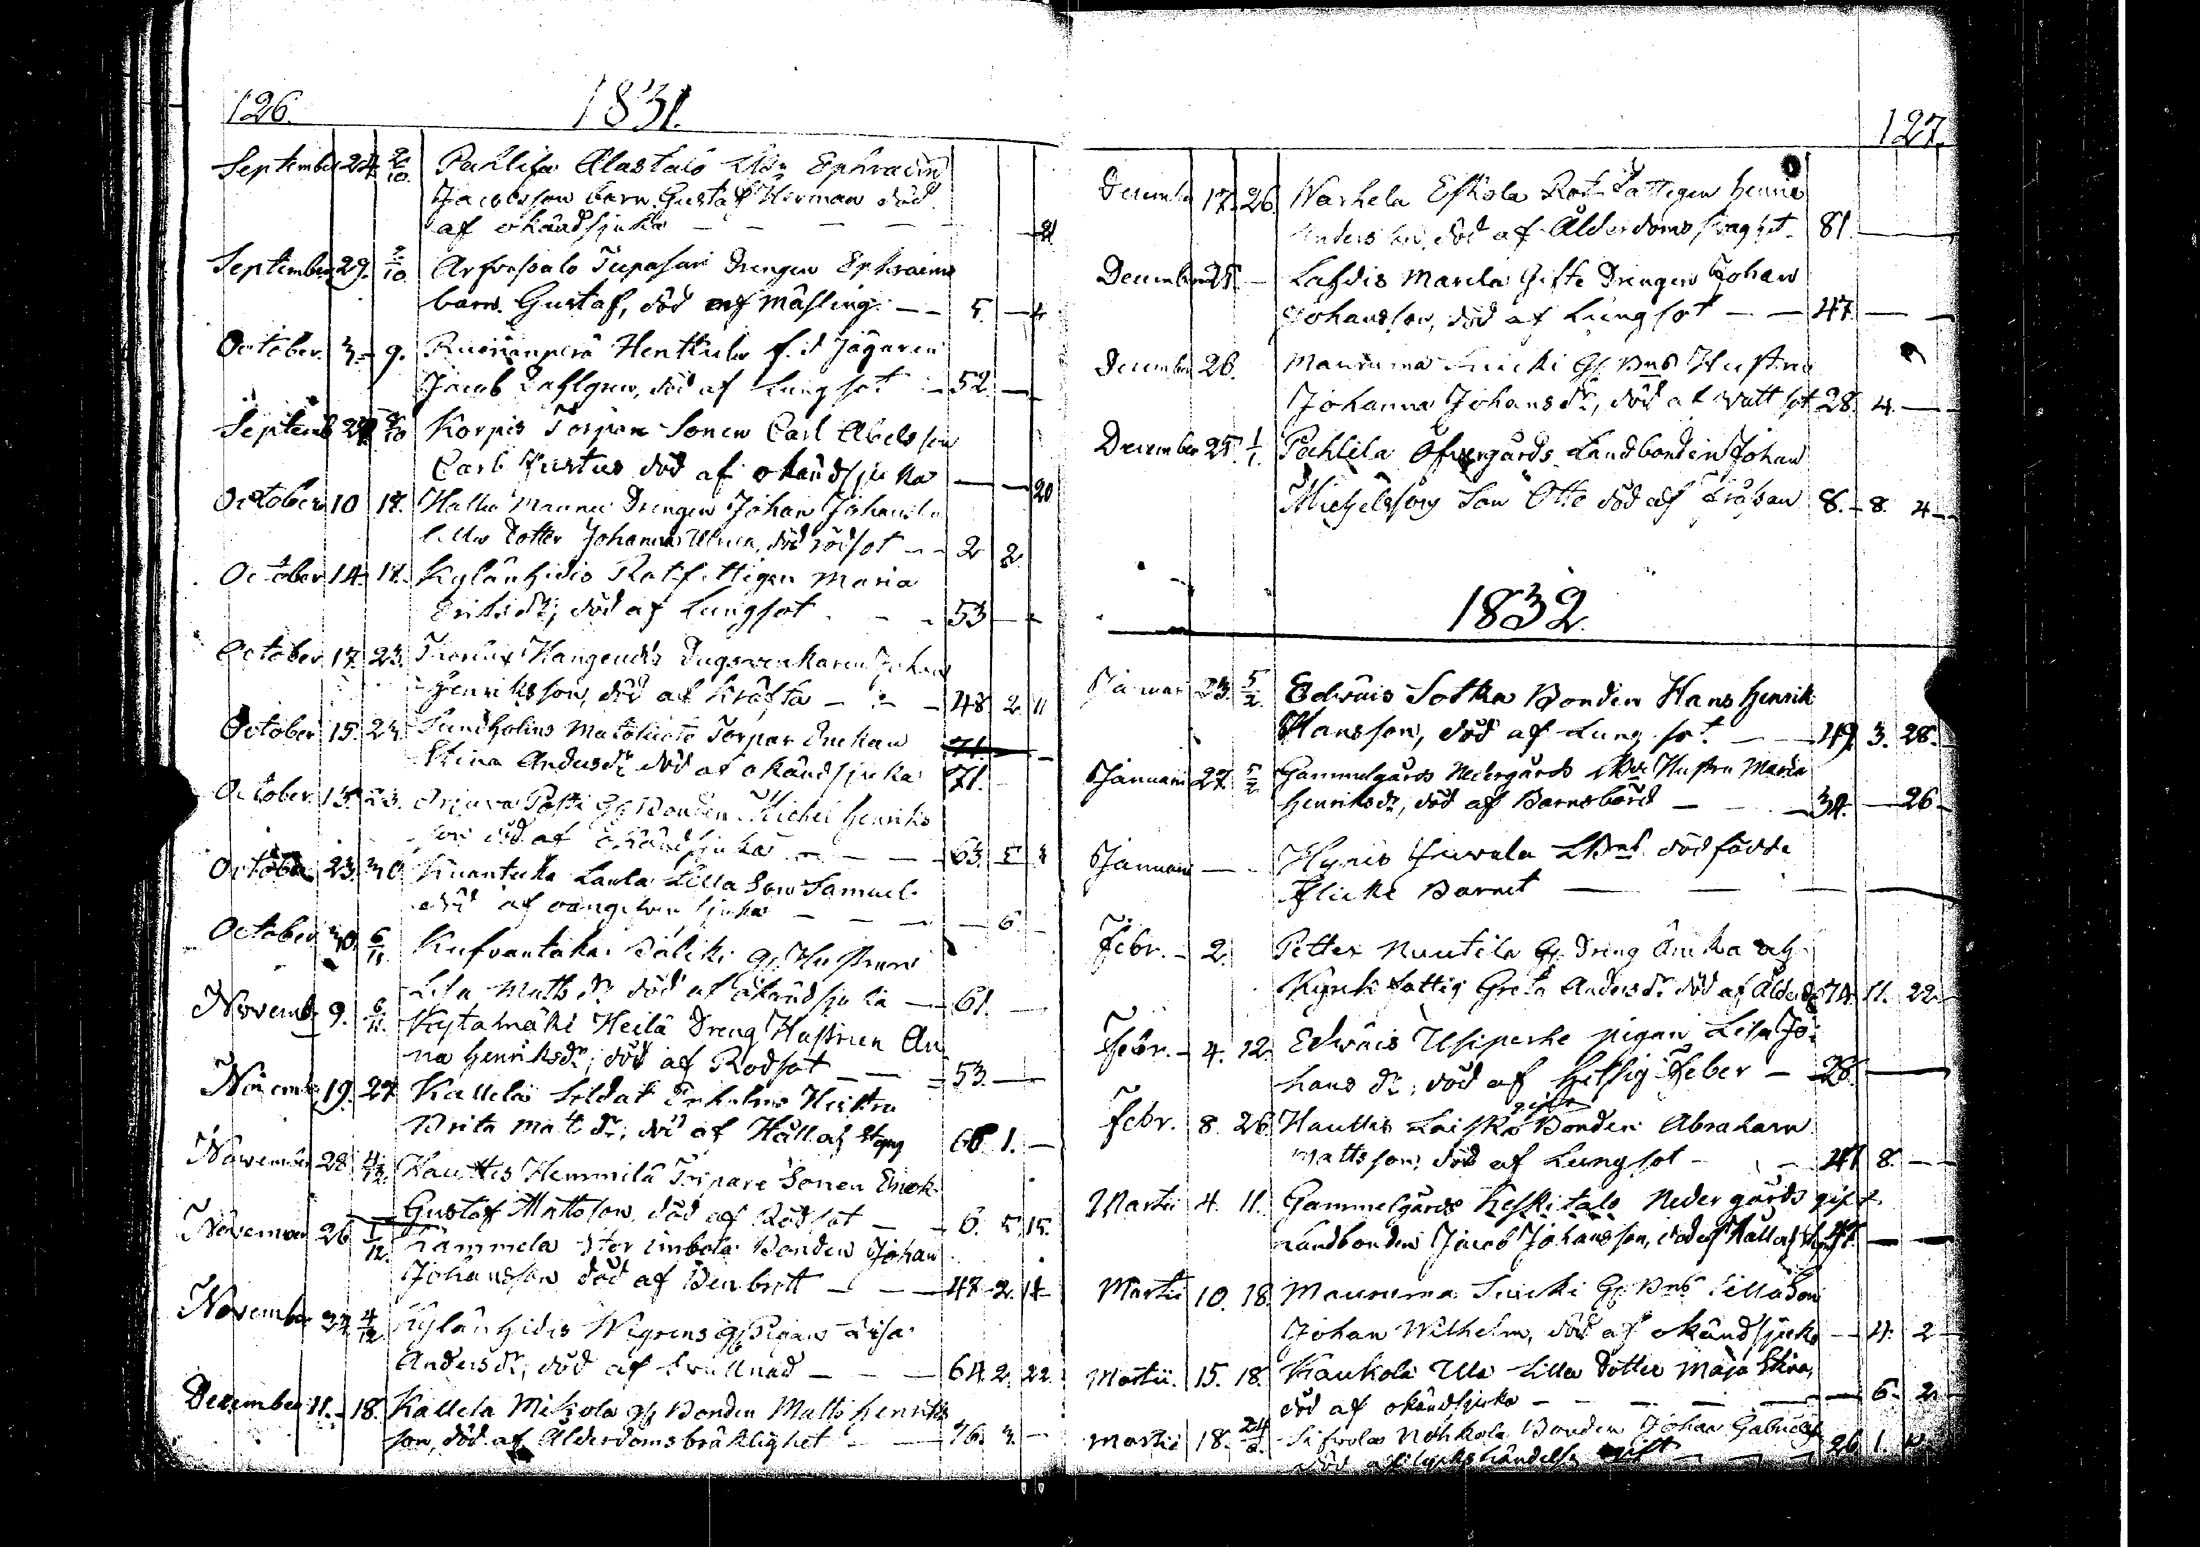 126. 1831.
September 24. 2/10. Pahlifa Alastalo Ldr Ephraim
Jacobsson barn Gustaf Herman död
af okänd sjuka — — — — — 21
September 29. 2/10 Arfvassalo Tupasari Drengen Ephraims
barn Gustaf, död af Mäsling — — 5. — 4
October. 3. — 9. Henttula f. d Jägaren
Jacob Dahlgren, död af Lungsot — 52 —
Septemb 29. 9/10 Korpis Torpare Sonen Carl Abelsson
Carl Justus död af okänd sjuka — — 20
October 10 17. Maunu Drengen Johan
lilla dotter Johanna Ulrica, död rödsot — — 2 2
October 14. 17. Kylänhidis Rotfattigen Maria
Eriksdr, död af Lungsot — — 53 — —
October 17. 23. Hangendis Johan
Henriksson, död af Kräfta — — — 48 2 11
October 15. 23. Sundholms Torpar Enckan 71.
Stina Andersdr död af okänd sjuka 71.
October 15. 23. Bonden Michel Henriks
son död af okänd sjuka — — — 63. 5
October 23. 30 Laula Lilla Son Samuel
död af sjuka — — — — 6
October 30. 6/11. Hustrun
Lisa Matts dr död af okänd sjuka — 61. —
Novemb. 9. 6/11. Kytämäki Heilä Dreng Hustrun An
na Henriksdr, död af Rodsot — — 53. —
Novemb 19. 27 Kallela Soldat Enholms Hustru
Brita Mats dr, död af Håll och Styng 66 1. —
November 28 4/12. Hauttis Hemmilä Torpare Sonen Enok
Gustaf Mattsson, död af Rödsot — — 6. 5 15.
November 26 1/12. Kammela Stor Imbola Bonden Johan
Johansson död af Benbrott — — — 47 2. 14
November 4/12 Kylänhidis Nygrens Pigan Lisa
Andersdr, död af Svullnad — — — 64. 2. 22.
December 11. — 18. Kallela Mikola Bonden Matts Henriks
son, död af Ålderdomsbräklighet — — 76. 3. —
127.
December 17. 26. Warhela Eskola Rot fattigen Henric
Andersson, död af Ålderdoms svaghet. 81. —
December 25. — Lahdis Marcla Gifte Drengen Johan
Johansson, död af Lungsot — — 47 — —
December 26. Mauruma Snicki Hustru
Johanna Johansdr, död af Vattsot 28. 4. —
December 25. 1/1. Pahlila Öfvergårds Landbonden Johan
Michelssons Son Otto död af Fråssan 8. — 8. 4 —
1832.
Januari 23. 5/2. Edväis Sotka Bonden Hans Henrik
Hansson, död af Lungsot. — — 49. 3. 28.
Januarii 27. 5/2 Gammelgårds Nedergårds Hustru Maria
Henriksdr, död af Barnsbörd — — 34. — 26 —
Januarii — — Hynis Juvela dödfödda
Flicke Barnet — — — —
Febr. — 2. Petter Nuutila Dreng Änka och
Kyrk fattig Greta Andersdr död af Ålderd 74. 11. 22.
Febr. — 4. 12. Edväis Usiperhe pigan Lisa Jo=
hans dr, död af Hettsig Feber — 28. —
Febr. 8. 26. Hauttis Laiska gifte Bonden Abraham
Mattsson, död af Lungsot — — 47 8. —
Martii 4. 11. Gammelgårds Keskitalo Nedergårds gift
Landbonden Jacob Johansson, död af Håll och Styng 47. — —
Martii 10. 18. Mauruma Snicki lilla Son
Johan Wilhelm, död af okänd sjuka — 4. 2 —
Martii. 15. 18. Kaukola Ulla Lilla dotter Maja Stina,
död af okänd sjuka — — — — — 6. 2. —
Martii 18. Nohkola Bonden Johan
död af Olyckshändelse gift — — — 26 1.